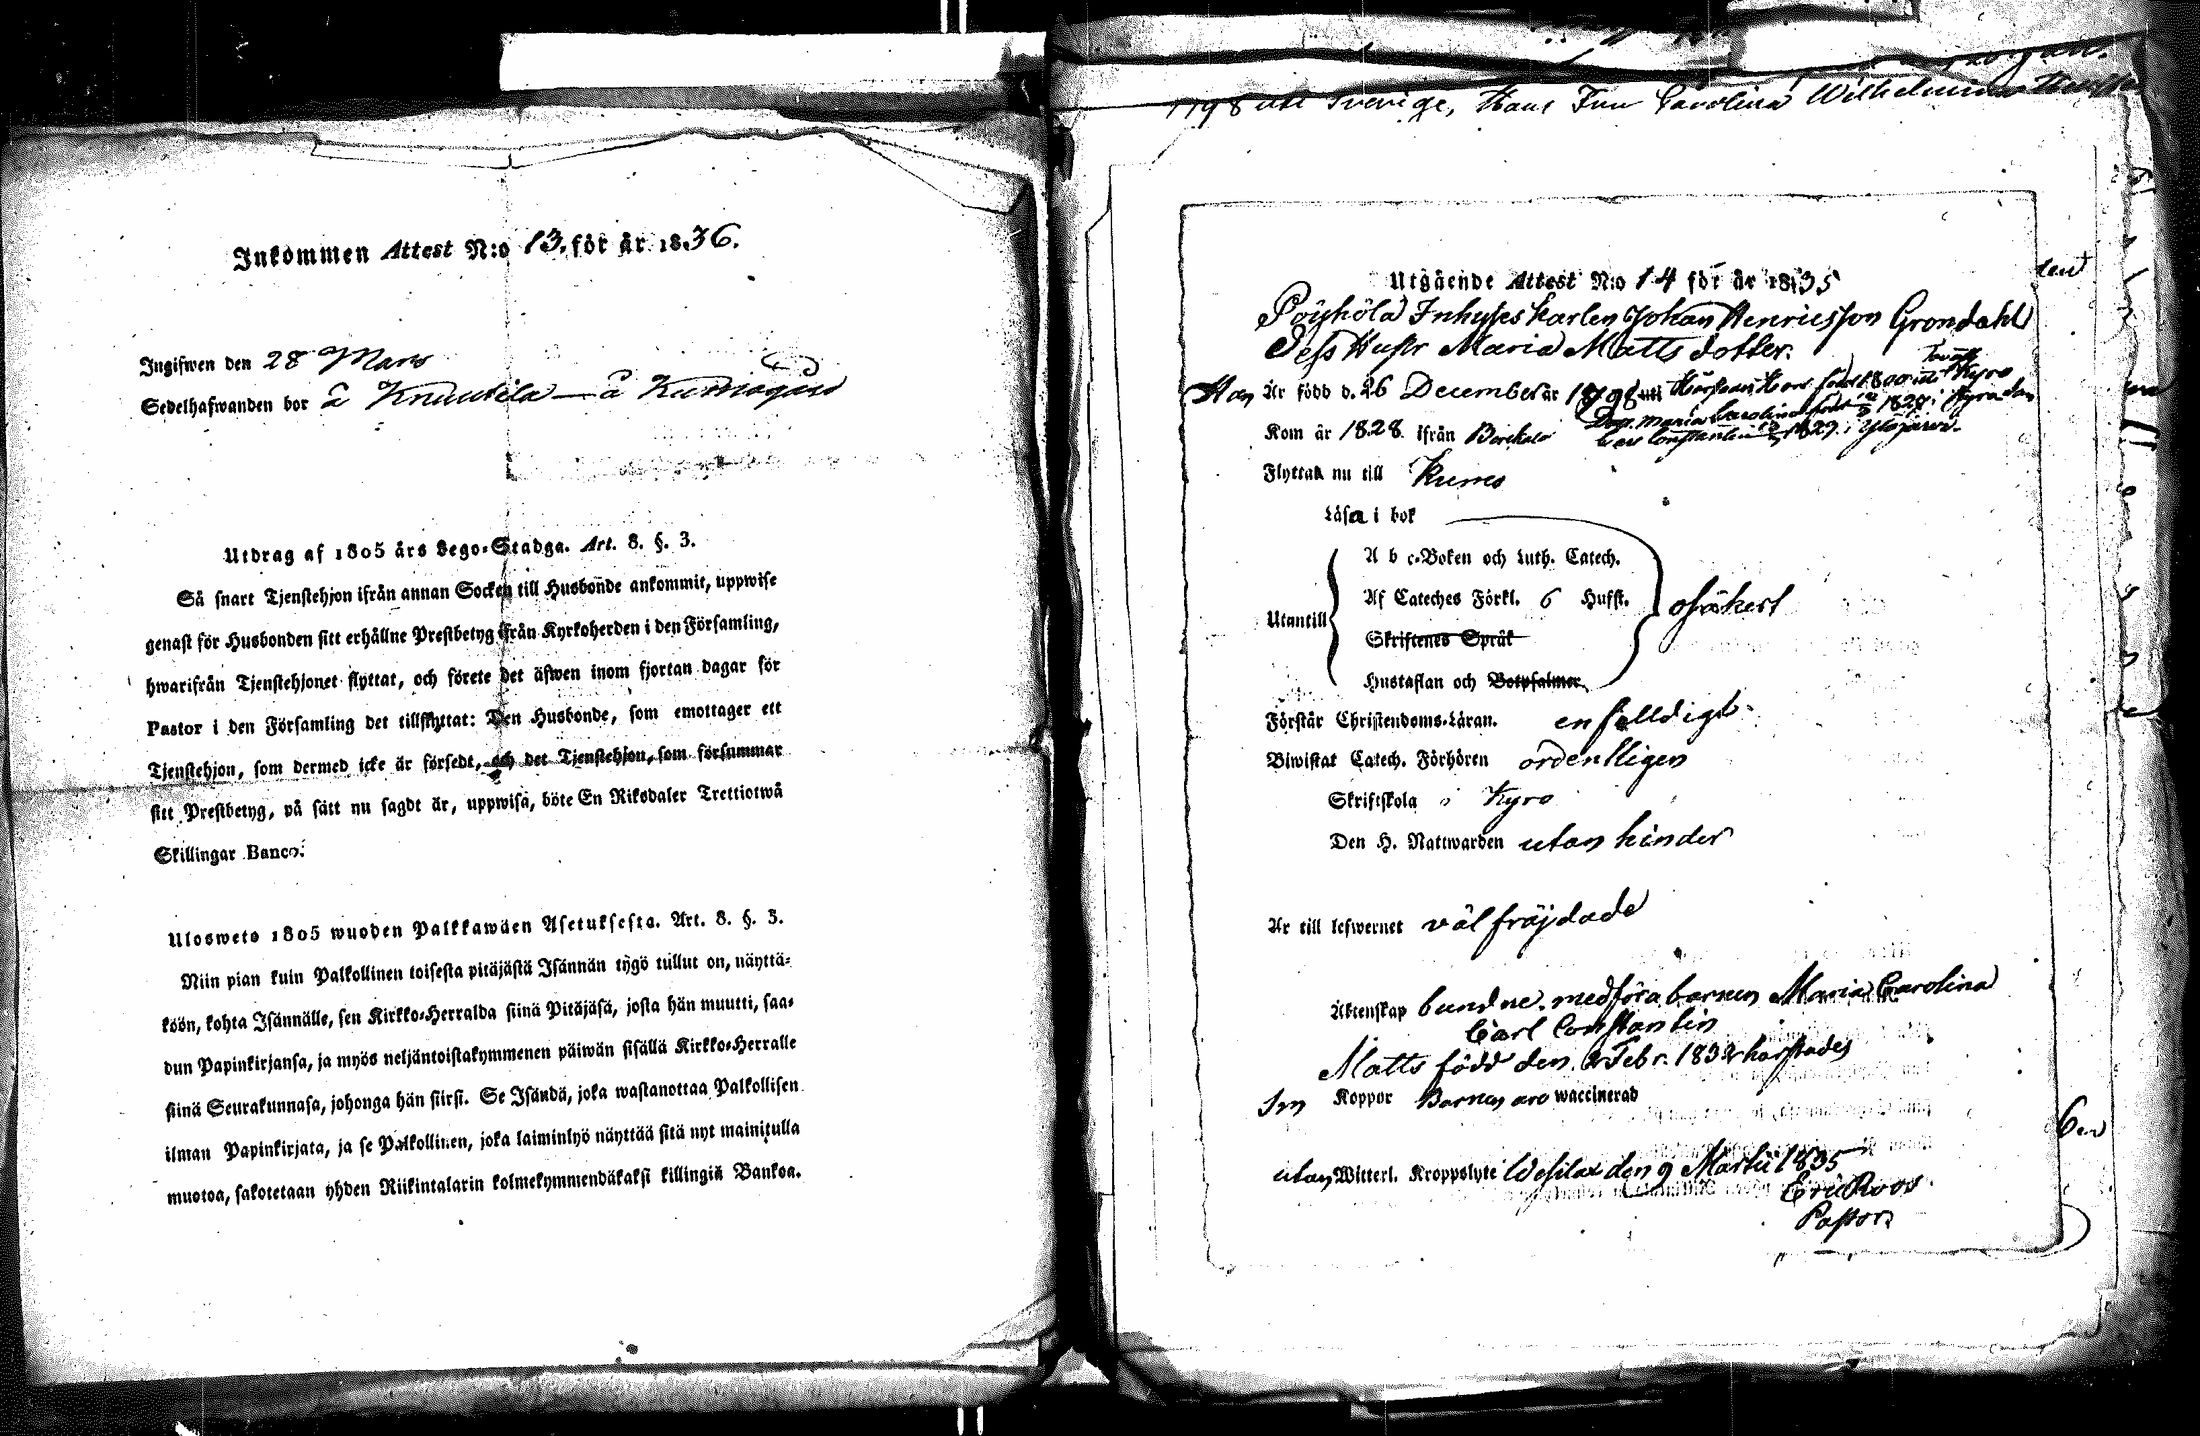 Inkommen Attest N:o 13. för år 1836.
Ingifwen den 28 Mars
Sedelhafwanden bor å Knuutila — å Kumogård
Utdrag af 1805 års Lego-Stadga. Art. 8. §. 3.
Så snart Tjenstehjon ifrån annan Socken till Husbonde ankommit, uppwise
genast för Husbonden sitt erhållne Prestbetyg ifrån Kyrkoherden i den Församling,
hwarifrån Tjenstehjonet flyttat, och förete det äfwen inom fjortan dagar för
Pastor i den Församling det tillflyttat: Den Husbonde, som emottager ett
Tjenstehjon, som dermed icke är försedt, och det Tjenstehjon, som försummar
sitt Prestbetyg, på sätt nu sagdt är, uppwisa, böte En Riksdaler Trettiotwå
Skillingar Banco.
Ulosweto 1805 wuoden Palkkawäen Asetuksesta. Art. 8. §. 3.
Niin pian kuin Palkollinen toisesta pitäjästä Isännän tygö tullut on, näyttä-
köön, kohta Isännälle, sen Kirkko-Herralda siinä Pitäjäsä, josta hän muutti, saa-
dun Papinkirjansa, ja myös neljäntoistakymmenen päiwän sisällä Kirkko-Herralle
siinä Seurakunnasa, johonga hän siirsi. Se Isändä, joka wastanottaa Palkollisen
ilman Papinkirjata, ja se Palkollinen, joka laiminlyö näyttää sitä nyt mainitulla
muotoa, sakotetaan yhden Riikintalarin kolmekymmendäkaksi killingiä Bankoa.
1798 uti Sverige, Hans Fru Carolina Wilhelmina
Utgående Attest N:o 14 för år 1835
Pöyhölä Inhyses karlen Johan Henricsson Grondahl
Dess Hustr Maria Matts dotter.
Han Är född d. 26 December år 1798 uti
Kom år 1828 ifrån
Dot. Maria Carolina född 1827 i Kyro
Carl Constantin 1829 i Ylöjärvi
Flyttar nu till Kumo
Läsa i bok
A b c-Boken och Luth. Catech.
Utantill Af Cateches Förkl. 6 Hufst. osäkert
Skriftenes Språk
Hustaflan och Botpsalmer
Förstår Christendoms-Läran. enfalldigt
Biwistat Catech. Förhören ordentligen
Skriftskola i Kyro
Den H. Nattwarden utan hinder
Är till lefwernet väl fräjdade
Äktenskap bundne. medföra barnen Maria Carolina
Carl Constantin
Matts född den 2 Febr. 1832 härstädes
Koppor Barnen äro waccinerad
utan Witterl. Kroppslyte Wesilax den 9 Martii 1835
Eric Roos
Pastor